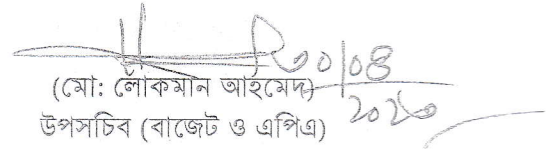 ৩০/০৪
২০২৩
(মো: লোকমান আহমেদ)
উপসচিব (বাজেট ও এপিএ)